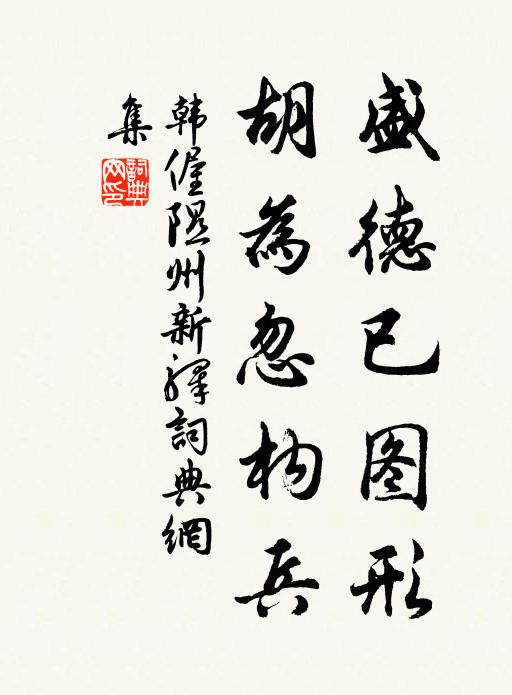 盛德已图形
胡為忽构兵
韩偓隰州新驿詞典網
集
詞典
网印